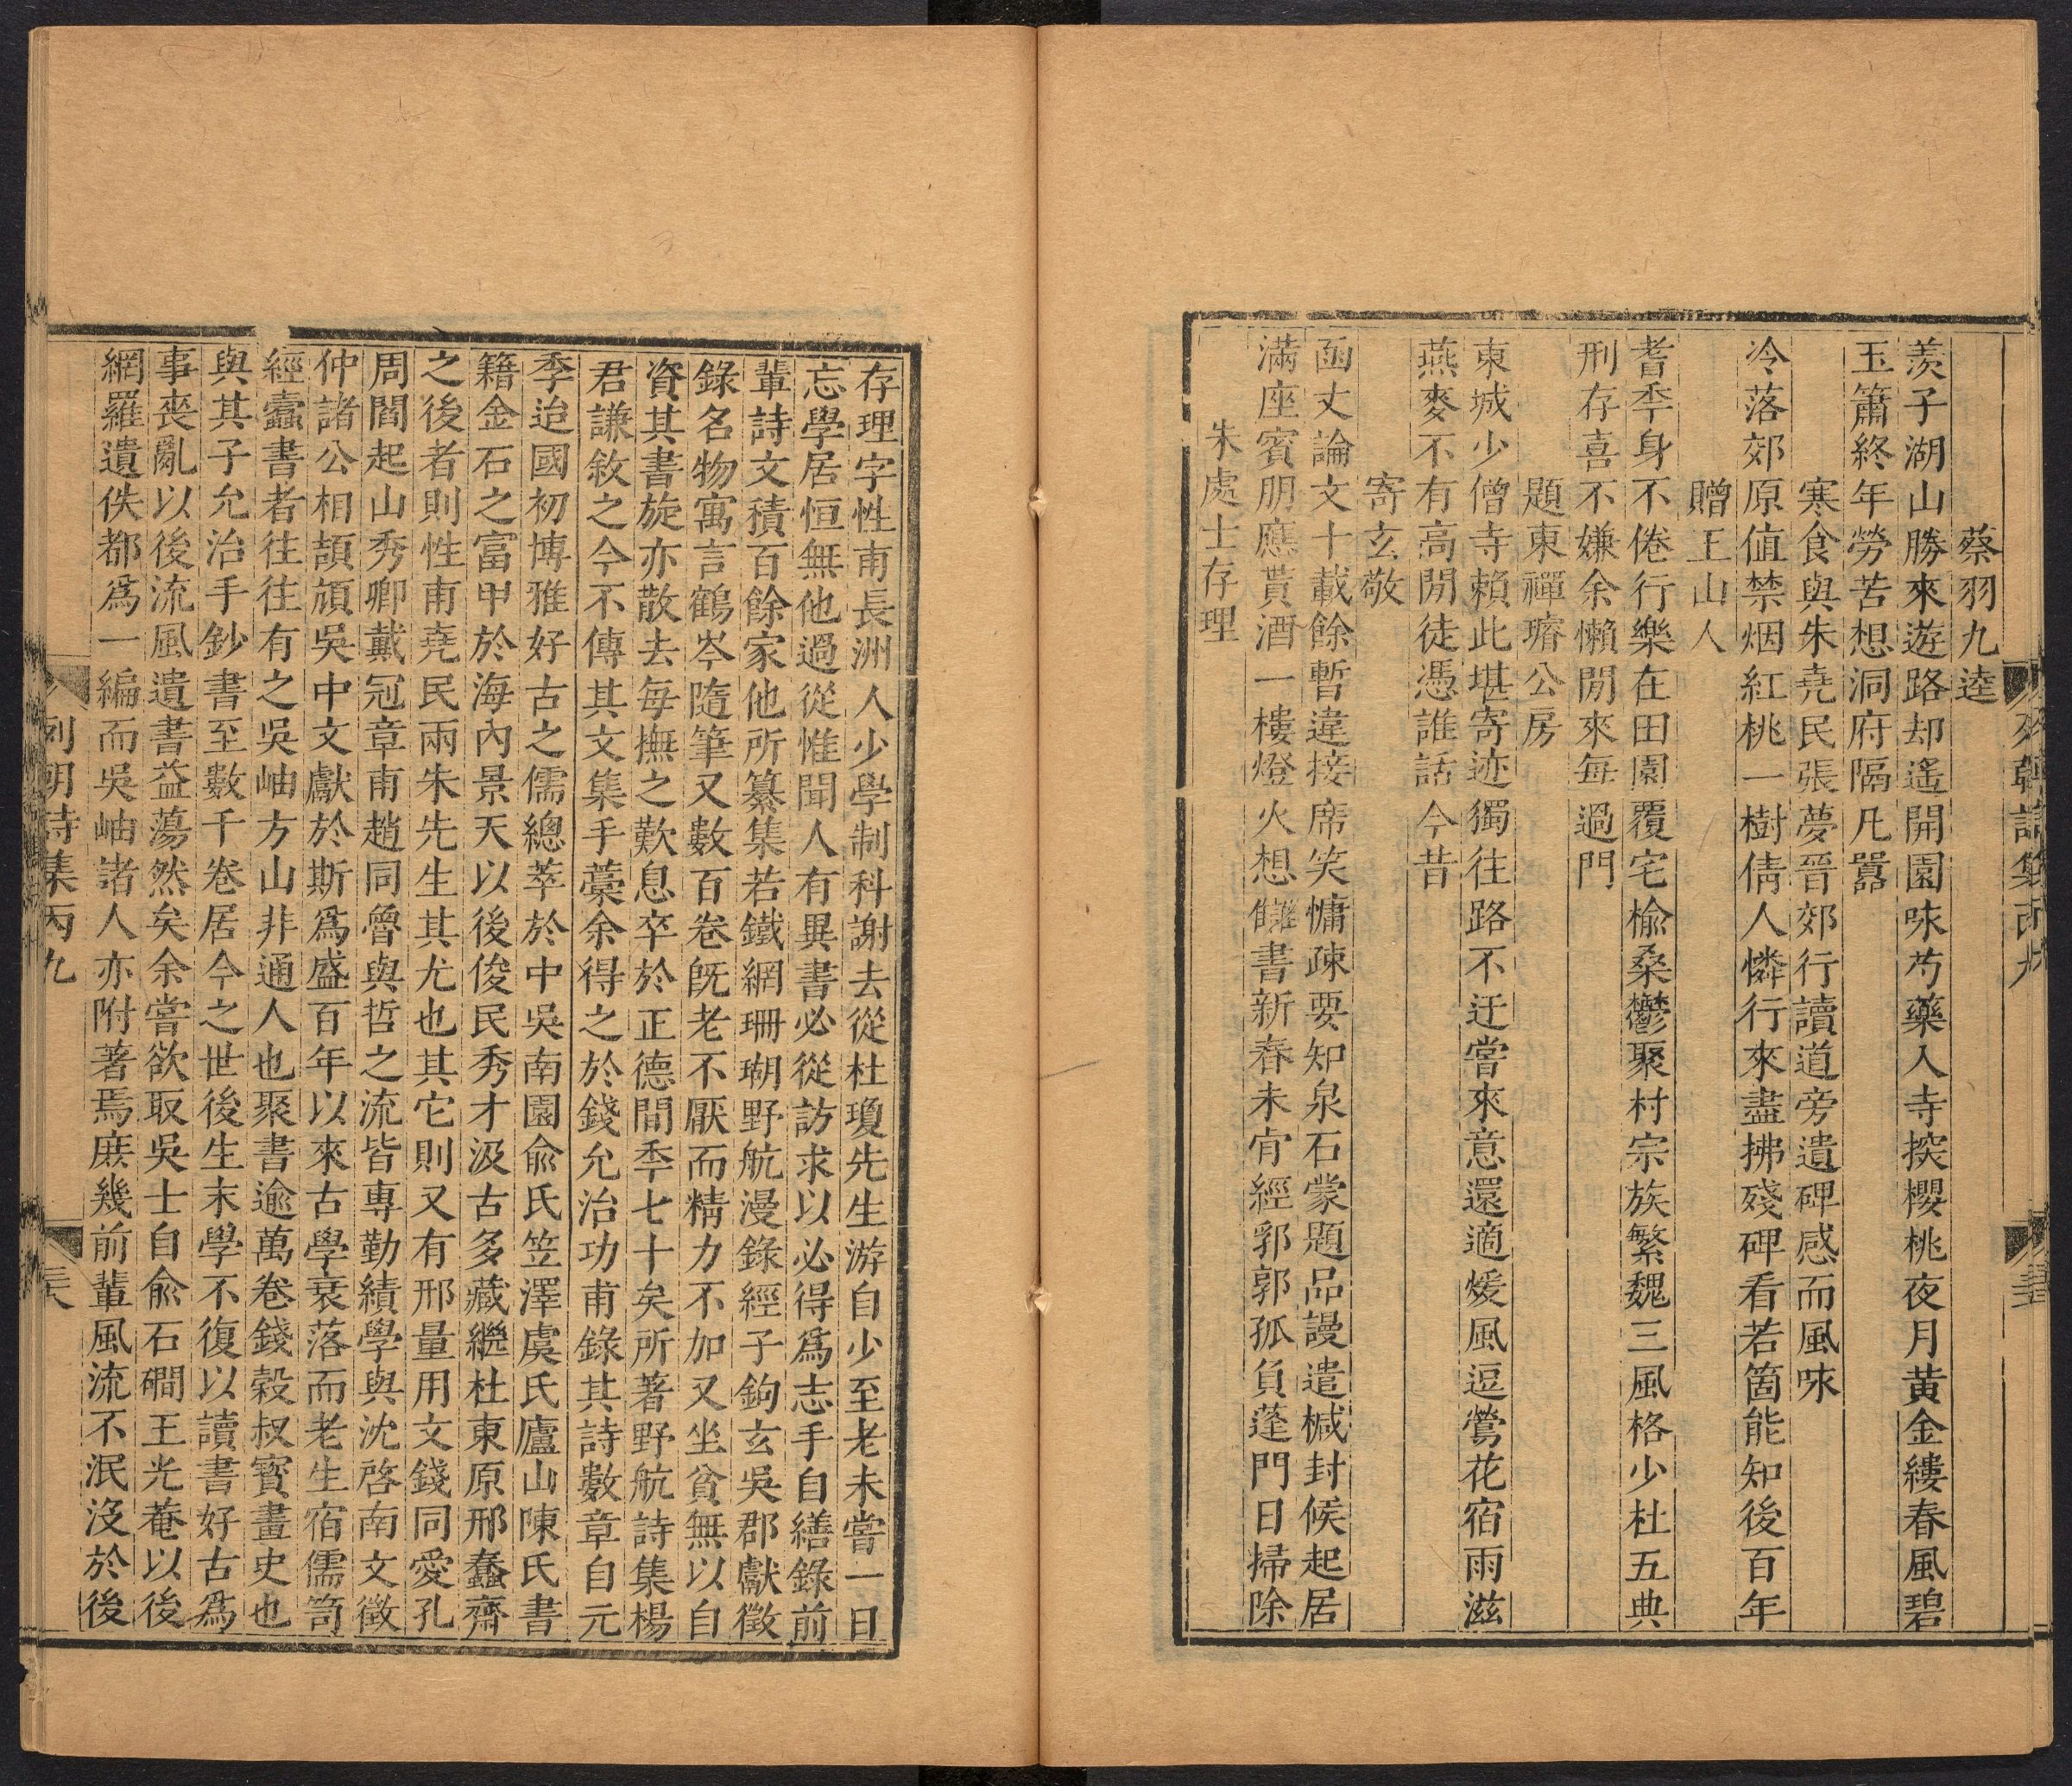 蔡羽九逵
羡子湖山勝來遊路却遙開園咏芍藥入寺揬櫻桃夜月黃金縷春風碧
玉簫終年勞苦想洞府隔凡囂
寒食與朱堯民張夢晉郊行讀道旁遺碑感而風咏
冷落郊原值禁烟紅桃一樹倩人憐行來盡拂殘碑看若箇能知後百年
贈王山人
耆季身不倦行樂在田園覆宅榆桑鬱聚村宗族繁魏三風格少杜五典
刑存喜不嫌余懶閒來每過門
題東禪璿公房
東城少僧寺賴此堪寄迹獨往路不迂嘗來意還適煖風逗鶯花宿雨滋
燕麥不有高閒徒憑誰話今昔
寄玄敬
函丈論文十載餘暫違接席笑慵疎要知泉石蒙題品謾遣椷封候起居
滿座賓朋應貰酒一樓燈火想讎書新春未肯經郛郭孤負蓬門日掃除
朱處士存理
存理字性甫長洲人少學制科謝去從杜瓊先生游自少至老未嘗一日
忘學居恒無他過從惟聞人有異書必從訪求以必得爲志手自繕錄前
輩詩文積百餘家他所纂集若鐵網珊瑚野航漫錄經子鉤玄吳郡獻徵
錄名物寓言鶴岑隨筆又數百卷旣老不厭而精力不加又坐貧無以自
資其書旋亦散去每撫之歎息卒於正德間季七十矣所著野航詩集楊
君謙敘之今不傳其文集手藁余得之於錢允治功甫錄其詩數章自元
季迨國初博雅好古之儒總萃於中吳南園俞氏笠澤虞氏廬山陳氏書
籍金石之富甲於海內景天以後俊民秀才汲古多藏繼杜東原邢蠢齋
之後者則性甫堯民兩朱先生其尤也其它則又有邢量用文錢同愛孔
周閻起山秀卿戴冠章甫趙同魯與哲之流皆專勤績學與沈啓南文徵
仲諸公相頡頏吳中文獻於斯爲盛百年以來古學衰落而老生宿儒笥
經蠹書者往往有之吳岫方山非通人也聚書逾萬卷錢穀叔寳畫史也
與其子允治手鈔書至數千卷居今之世後生末學不復以讀書好古爲
事喪亂以後流風遺書益蕩然矣余嘗欲取吳士自俞石磵王光菴以後
網羅遺佚都爲一編而吳岫諸人亦附著焉庶幾前輩風流不泯沒於後
列朝詩集丙九